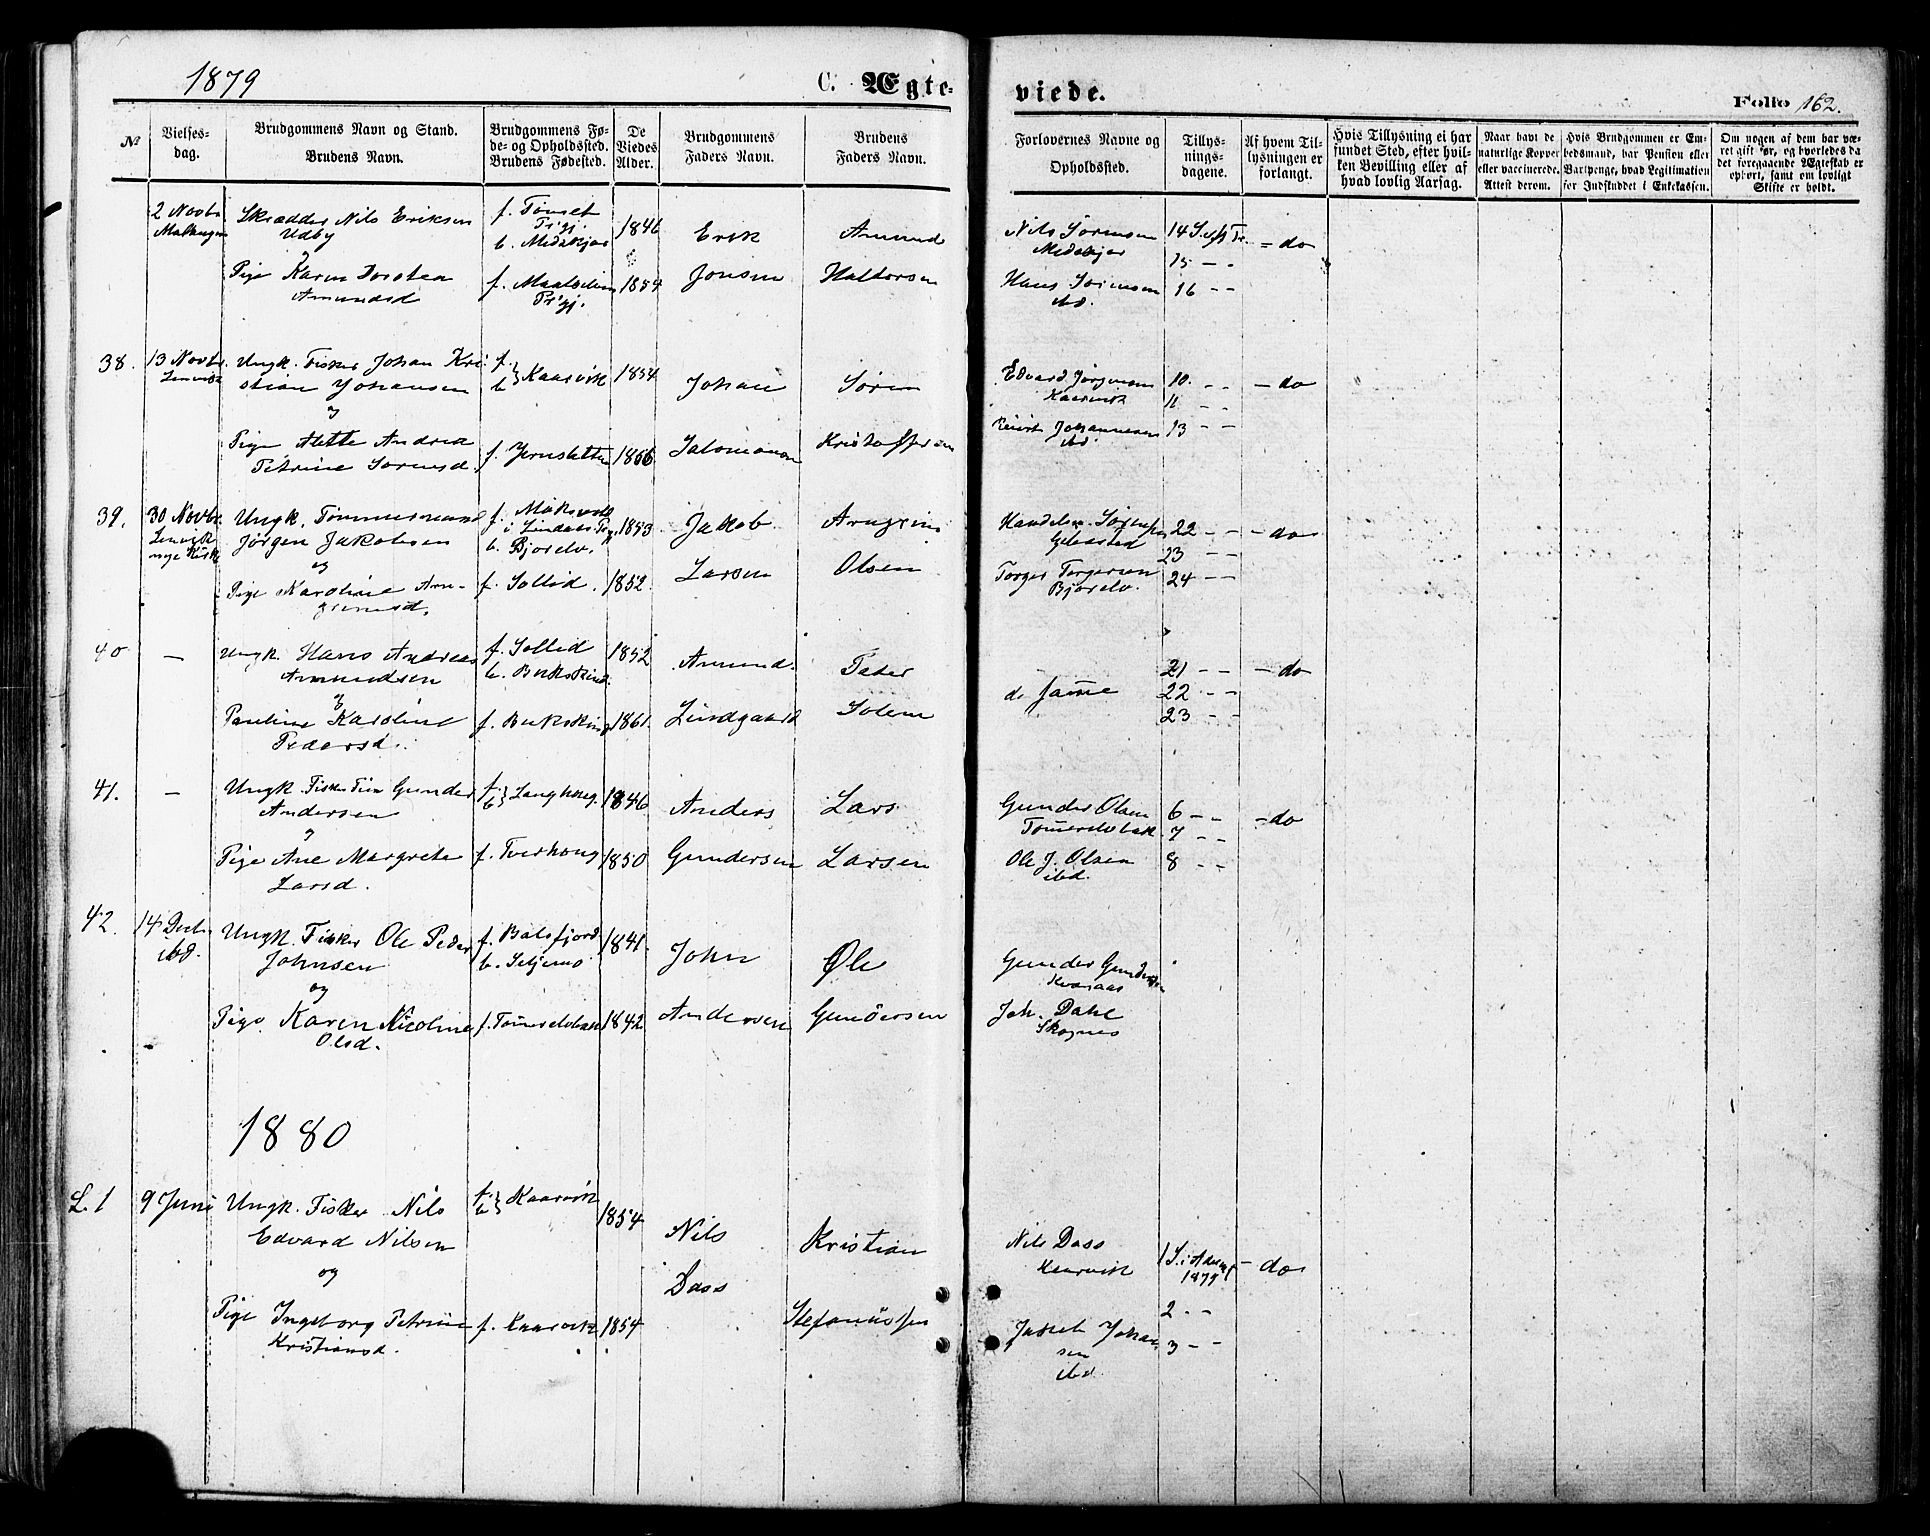 1879
C. Ægte-
viede.
Folio 162.
№
Vielses-
dag.
Brudgommens Navn og Stand.
Brudens Navn.
Brudgommens Fø-
de- og Opholdssted.
Brudens Fødested.
De
Viedes
Alder.
Brudgommens
Faders Navn.
Brudens
Faders Navn.
Forlovernes Navne og
Opholdssted.
Tillys-
nings-
dagene.
Af hvem Til-
lysningen er
forlangt.
Hvis Tillysning ei har
fundet Sted, efter hvil-
ken Bevilling eller af
hvad lovlig Aarsag.
Naar havt de
naturlige Kopper
eller vaccinerede.
Attest derom.
Hvis Brudgommen er Em-
bedsmand, har Pension eller
Vartpenge, hvad Legitimation
for Indskuddet i Enkekassen.
Om nogen af dem har væ-
ret gift før, og hvorledes da
det foregaaende Ægteskab er
ophørt, samt om lovligt
Skifte er holdt.
2 Novbr
Malangen
Skrædder Nils Eriksen
Udby
og
Pige Karen Dorthea
Amundsd
f. Tønset
Prgj.
b. Medekjær
f. Maalselven
Prgj.
1846
1854
Erik
Jonsen
Amund
Haldorsen
Nils Sørensen
Medekjær
Hans Sørensen
ibd.
14 S. eft Tr.
15 – –
16 – –
– do
38.
13 Novbr
Lenvik
Ungk. Fisker Johan Kri
stian Johansen
og
Pige Alette Andrea
Petrine Sørensd.
f.
b. } Kaarvik
f. Jernsletten
1854
1856
Johan
Salomonsen
Søren
Kristoffersen
Edvard Jørgensen
Kaarvik
Johannesen
ibd.
10. – –
11 – –
13 – –
– do
39.
30 Novbr.
Lenvik
nye Kirke
Ungk. Tømmermand
Jørgen Jakobsen
og
Pige Karoline Arn-
grimsd.
f.
i Lindaas Prgj.
b. Bjorelv.
f. Sollid.
1853
1852.
Jakob
Larsen
Arngrim
Olsen
Handelsm. Sørensen
Gibostad
Torger Torgersen
Bjorelv.
22 – –
23 – –
24 – –
– do
40
–
Ungk. Hans Andreas
Amundsen
og
Pauline Karoline
Pedersd.
f. Sollid
b. Bukskind.
f. Bukskind
1852
1861.
Amund.
Lindgaard
Peder
Solem
de samme
21 – –
22 – –
23 – –
– do
41.
–
Ungk. Fisker Finn Gunder
Andersen
og
Pige Ane Margrete
Larsd.
f.
b. } Langhaug.
f. Tverhaug
1846.
1850
Anders
Gundersen
Lars
Larsen
Gunder Olsen
Tømerelvbak.
Ole J. Olsen
ibd.
6 – –
7 – –
8 – –
– do
42.
14 Decbr
ibd.
Ungk. Fisker Ole Peder
Johnsen
og
Pige Karen Nicoline
Olsd.
f. Balsfjord
b. Seljemo
f. Tømerelvbak
1841.
1842.
John
Andersen
Ole
Gundersen
Gunder Gundersen
Kvanaas
Joh. Dahl
Skognes
1880
L. 1
9 Juni
Ungk. Fisker Nils
Edvard Nilsen
og
Pige Ingeborg Petrine
Kristiansd.
f.
b. } Kaarvik
f. Kaarvik
1854
1854
Nils
Dass
Kristian
Stefanussen
Nils Dass
Kaarvik
Johan
sen
ibd.
1 S. i Advent
1879
2 – –
3 – –
– do